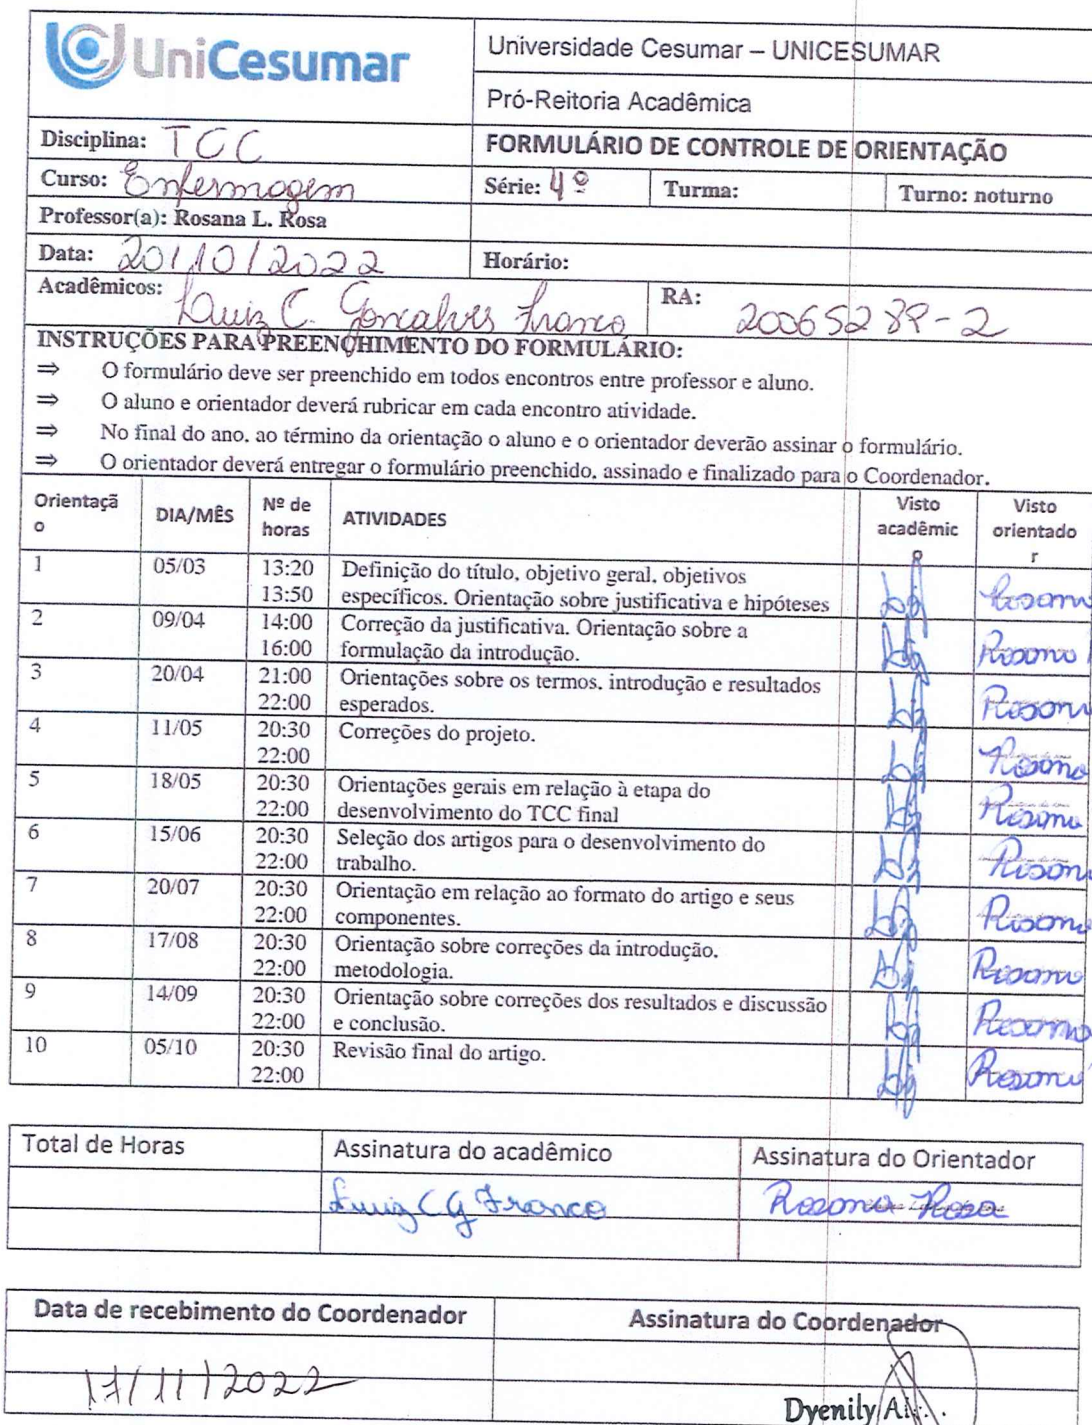 UniCesumar
Universidade Cesumar – UNICESUMAR
Pró-Reitoria Acadêmica
Disciplina: TCC
FORMULÁRIO DE CONTROLE DE ORIENTAÇÃO
Curso: Enfermagem
Série: 4º
Turma:
Turno: noturno
Professor(a): Rosana L. Rosa
Data: 20/10/2022
Horário:
Acadêmicos: Luiz C. Goncalves Franco
RA: 20065289-2
INSTRUÇÕES PARA PREENCHIMENTO DO FORMULÁRIO:
⇒ O formulário deve ser preenchido em todos encontros entre professor e aluno.
⇒ O aluno e orientador deverá rubricar em cada encontro atividade.
⇒ No final do ano, ao término da orientação o aluno e o orientador deverão assinar o formulário.
⇒ O orientador deverá entregar o formulário preenchido, assinado e finalizado para o Coordenador.
Orientaçã
o
DIA/MÊS
Nº de
horas
ATIVIDADES
Visto
acadêmic
o
Visto
orientado
r
1 05/03 13:20 Definição do título, objetivo geral, objetivos
13:50 específicos. Orientação sobre justificativa e hipóteses Rosana
2 09/04 14:00 Correção da justificativa. Orientação sobre a
16:00 formulação da introdução. Rosana
3 20/04 21:00 Orientações sobre os termos, introdução e resultados
22:00 esperados. Rosana
4 11/05 20:30 Correções do projeto.
22:00 Rosana
5 18/05 20:30 Orientações gerais em relação à etapa do
22:00 desenvolvimento do TCC final Rosana
6 15/06 20:30 Seleção dos artigos para o desenvolvimento do
22:00 trabalho. Rosana
7 20/07 20:30 Orientação em relação ao formato do artigo e seus
22:00 componentes. Rosana
8 17/08 20:30 Orientação sobre correções da introdução,
22:00 metodologia. Rosana
9 14/09 20:30 Orientação sobre correções dos resultados e discussão
22:00 e conclusão. Rosana
10 05/10 20:30 Revisão final do artigo.
22:00 Rosana
Total de Horas
Assinatura do acadêmico
Assinatura do Orientador
Luiz C G Franco
Rosana Rosa
Data de recebimento do Coordenador
Assinatura do Coordenador
17/11/2022
Dyenily